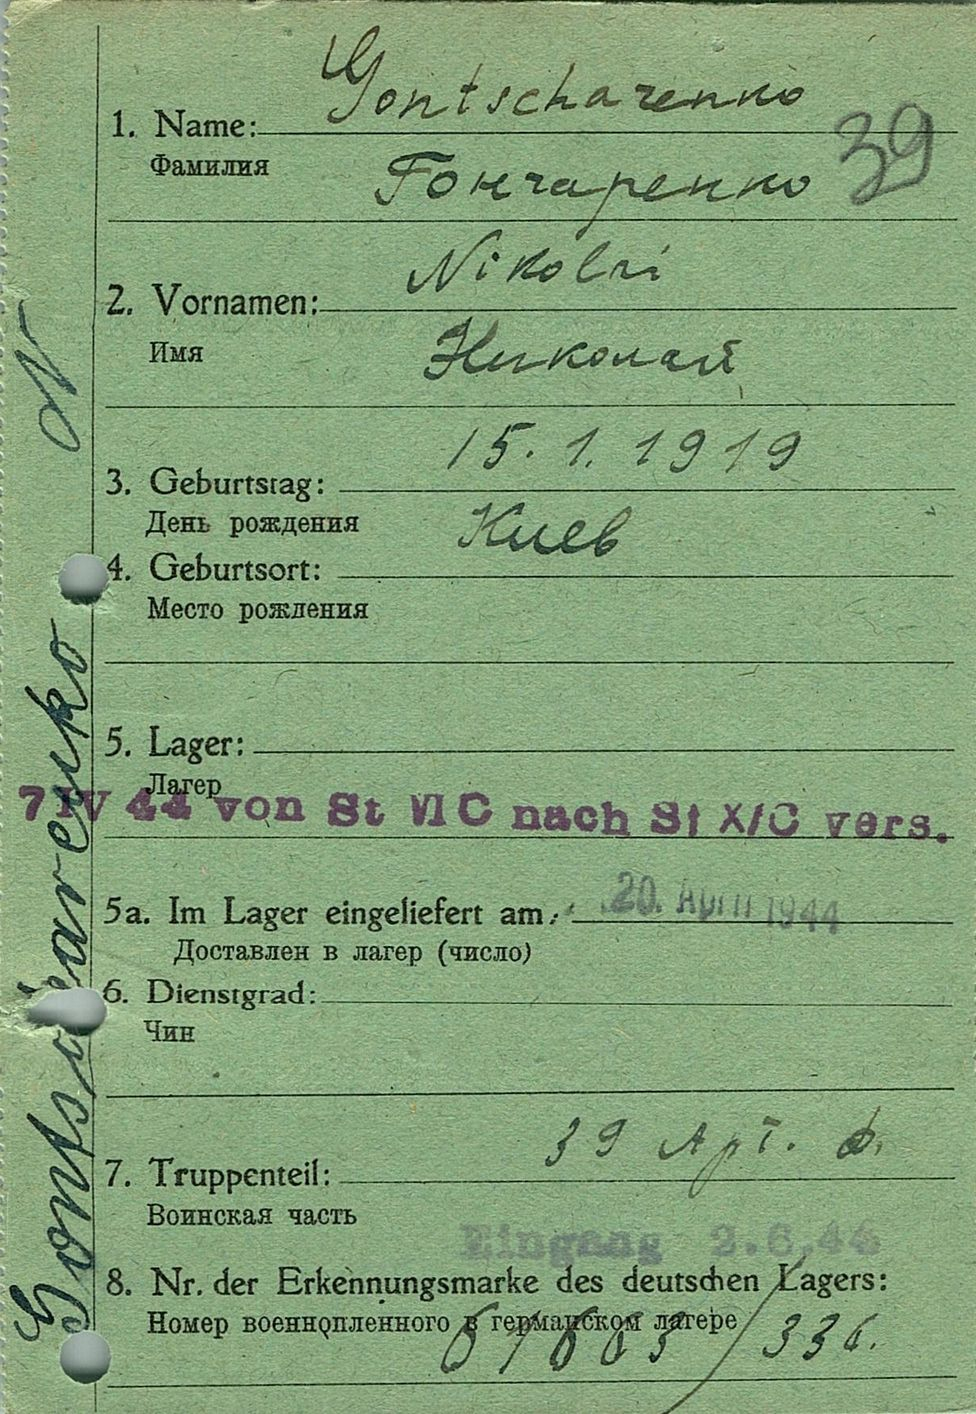 Gontscharenko
1. Name:
Фамилия
39
Гончаренко
Nikolai
2. Vornamen:
Имя
Николай
15. 1. 1919
3. Geburtstag:
День рождения
Киев
4. Geburtsort:
Место рождения
5. Lager:
Лагер
7 IV 44 von St VI C nach St X/C vers.
5a. Im Lager eingeliefert am:
20. April 1944
Доставлен в лагер (число)
6. Dienstgrad:
Чин
39 Арт.
7. Truppenteil:
Воинская часть
Eingang 2.6.44
8. Nr. der Erkennungsmarke des deutschen Lagers:
Номер военнопленного в германском лагере
61663 / 336.
Gontscharenko N